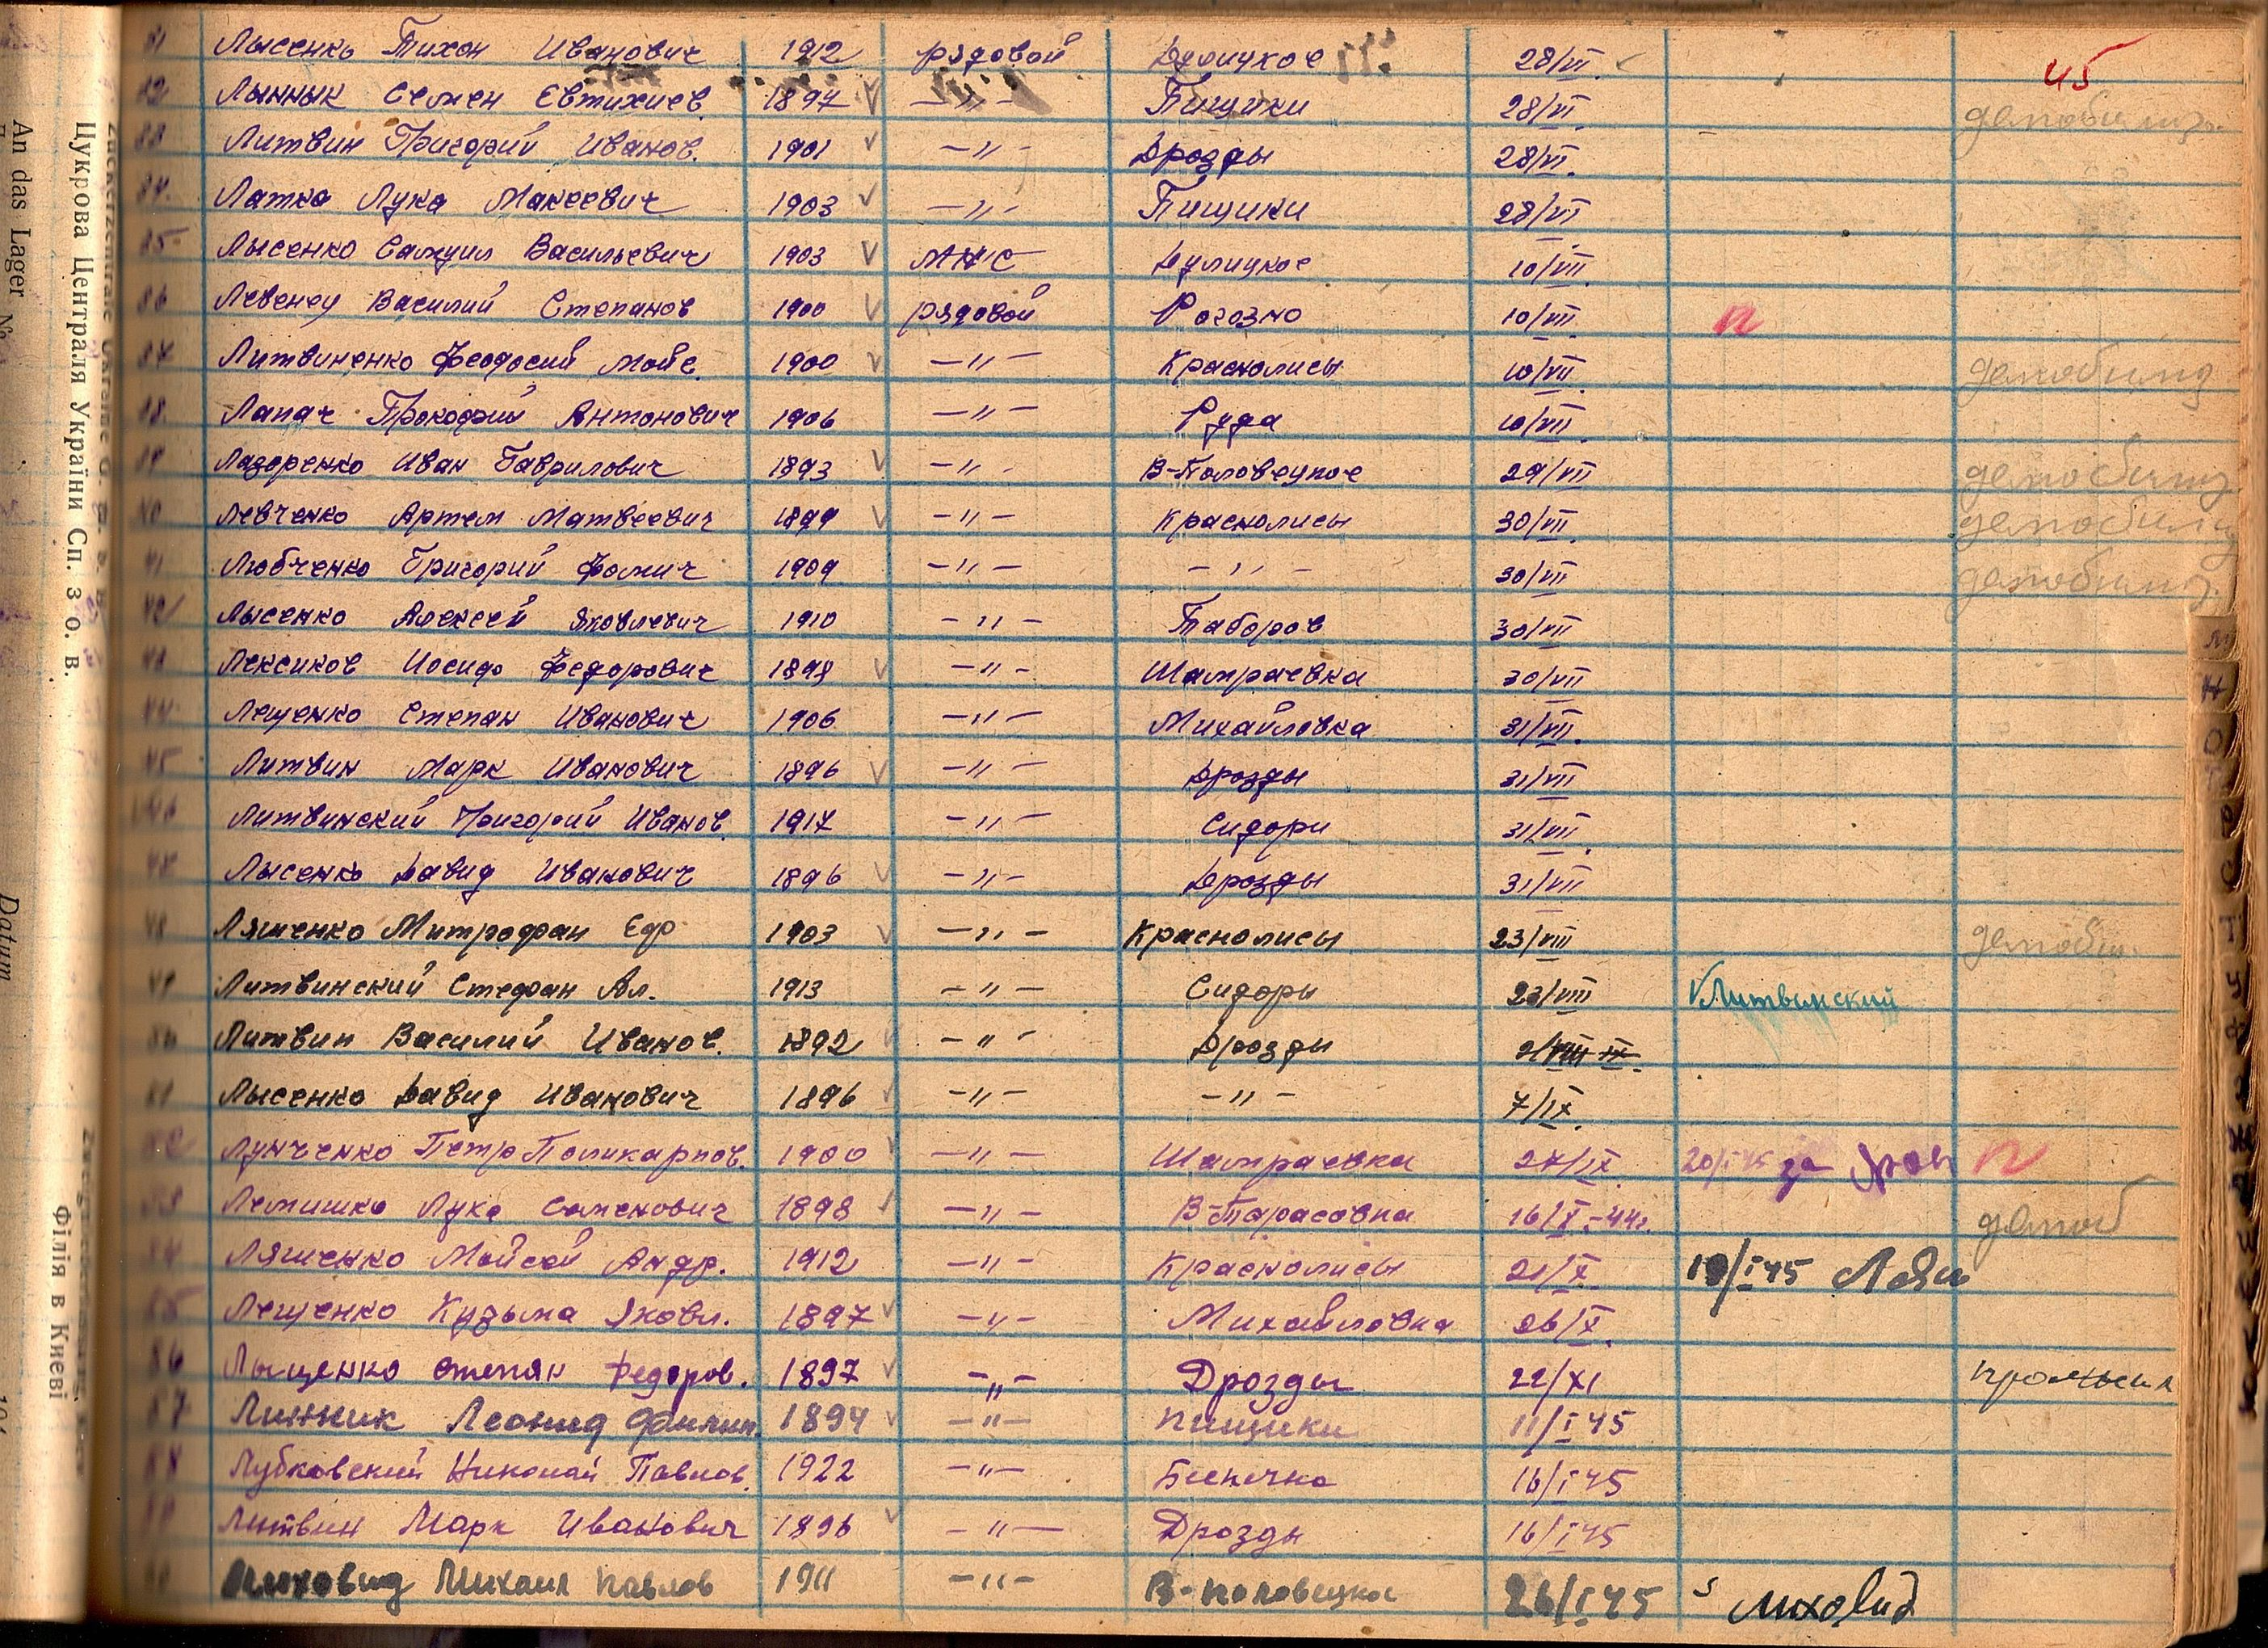 Лысенко Тихон Иванович 1912 рядовой 28/VII. 45
Лынник Семен Евтихиев. 1897 V —〃— Пищики 28/VI.
Литвин Григорий Иванов. 1901 V —〃— Дрозды 28/VI.
Латка Лука Макеевич 1903 V —〃— Пищики 28/VI
35 Лысенко Самуил Васильевич 1903 V МНС Дулицкое 10/VII.
36 Левенец Василий Степанов 1900 V рядовой Рогозно 10/VII.
37 Литвиненко Феодосий Мойс. 1900 V —〃— Краснолисы 10/VII. демобилиз
38. Лапач Прокофий Антонович 1906 —〃— Руда 10/VII.
39 Лазоренко Иван Гаврилович 1893 V —〃— В-Половецкое 29/VII демобилиз.
40 Левченко Артем Матвеевич 1899 V —〃— Краснолисы 30/VII. демобилиз
41 Любченко Григорий Фомич 1909 —〃— —〃— 30/VII демобилиз.
42 Лысенко Алексей Яковлевич 1910 —〃— Таборов 30/VII
43 Лексиков Иосиф Федорович 1898 V —〃— Шамраевка 30/VII
44 Лещенко Степан Иванович 1906 —〃— Михайловка 31/VII.
45 Литвин Марк Иванович 1896 V —〃— Дрозды 31/VII
46 Литвинский Григорий Иванов. 1917 —〃— Сидори 31/VII.
47 Лысенко Давид Иванович 1896 V —〃— Дрозды 31/VII
48 Ляшенко Митрофан Еф. 1903 V —〃— Краснолисы 23/VIII демоби.
49 Литвинский Стефан Ал. 1913 —〃— Сидоры 23/VIII V Литвинский
50 Литвин Василий Иванов. 1892 V —〃— Дрозды
51 Лысенко Давид Иванович 1896 V —〃— —〃— 7/IX.
52 Лунченко Петр Поликарпов. 1900 V —〃— Шамраевка 27/IX. 20/I 45 за
53 Лемишко Лука Семенович 1898 V —〃— В-Тарасовка 16/X.-44г. демоб
54 Ляшенко Мойсей Андр. 1912 —〃— Краснолисы 21/X. 19/I 45 Ляш
55 Лещенко Кузьма Яковл. 1897 V —〃— Михайловка 26/X.
56 Лыщенко Степан Федоров. 1897 V —〃— Дрозды 22/XI
57 Линник Леонид Филип. 1894 V —〃— Пищики 11/I 45
58 Лубковский Николай Павлов. 1922 —〃— 16/I 45
59 Литвин Марк Иванович 1896 V —〃— Дрозды 16/I 45
60 Лиховид Михаил Павлов 1911 —〃— В-Половецкое 26/I 45 Лиховид
Цукрова Централя України Сп. з о. в.
Філія в Києві
An das Lager №
Datum